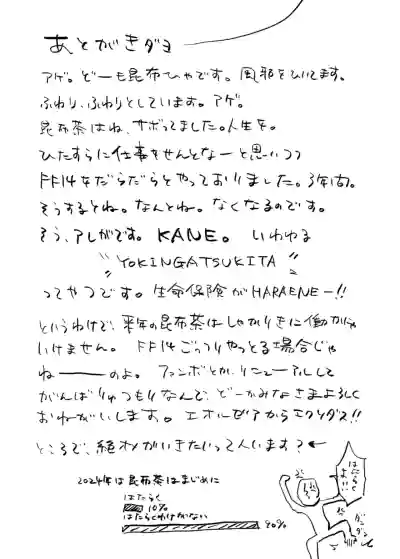 あとがきダヨ
アゲ。どーも昆布ひゃです。風邪をひいてます。
ふわり、ふわりとしています。アゲ。
昆布茶はね、サボってました。人生を。
ひたすらに仕事をせんとなーと思いつつ
FF14をだらだらとやっておりました。3年間。
そうするとね。なんとね。なくなるのです。
そう、アレがです。KANE。いわゆる
"YOKINGATSUKITA"
ってやつです。生命保険がHARAENEー!!
というわけで、来年の昆布茶はしゃかりきに働かにゃ
いけません。FF14ごっつりやっとる場合じゃ
ねーーのよ。ファンボとか、リニューアルして
がんばりゅつもりなんで、どーかみなさまよろしく
おねがいします。エオルゼアからエクソダス!!
ところで、絶オメガいきたいって人います?←
2024年は昆布茶はまじめに
はたらく
10%
はたらくわけがない
90%
はたらく
よ!!
ダン
ダン